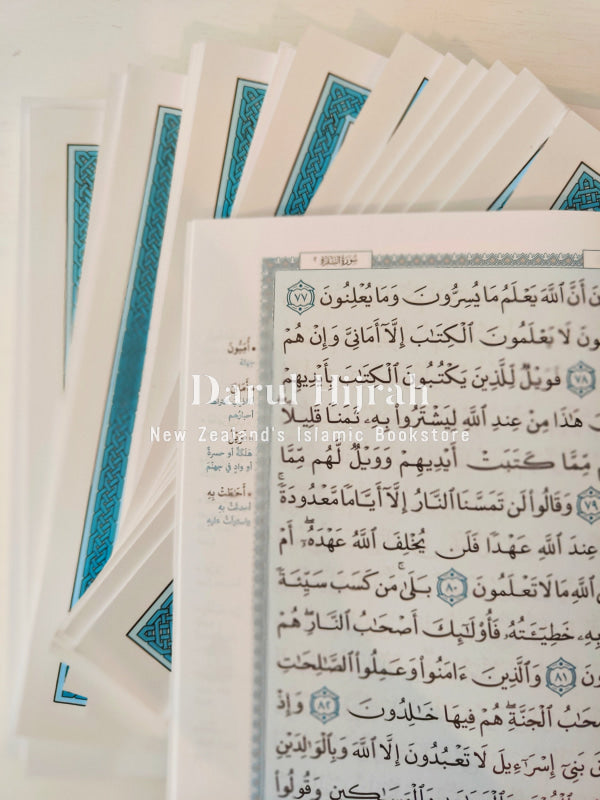 سُورَةُ البَقَرَةِ ٢
أَنَّ ٱللَّهَ يَعْلَمُ مَا يُسِرُّونَ وَمَا يُعْلِنُونَ ٧٧
لَا يَعْلَمُونَ ٱلْكِتَٰبَ إِلَّآ أَمَانِىَّ وَإِنْ هُمْ
٧٨ فَوَيْلٌ لِّلَّذِينَ يَكْتُبُونَ ٱلْكِتَٰبَ بِأَيْدِيهِمْ
هَٰذَا مِنْ عِندِ ٱللَّهِ لِيَشْتَرُوا۟ بِهِۦ ثَمَنًا قَلِيلًا
مِّمَّا كَتَبَتْ أَيْدِيهِمْ وَوَيْلٌ لَّهُم مِّمَّا
٧٩ وَقَالُوا۟ لَن تَمَسَّنَا ٱلنَّارُ إِلَّآ أَيَّامًا مَّعْدُودَةً ۚ
عِندَ ٱللَّهِ عَهْدًا فَلَن يُخْلِفَ ٱللَّهُ عَهْدَهُۥٓ ۖ أَمْ
ٱللَّهِ مَا لَا تَعْلَمُونَ ٨٠ بَلَىٰ ۚ مَن كَسَبَ سَيِّئَةً
بِهِۦ خَطِيٓـَٔتُهُۥ فَأُو۟لَٰٓئِكَ أَصْحَٰبُ ٱلنَّارِ ۖ هُمْ
٨١ وَٱلَّذِينَ ءَامَنُوا۟ وَعَمِلُوا۟ ٱلصَّٰلِحَٰتِ
أَصْحَٰبُ ٱلْجَنَّةِ ۖ هُمْ فِيهَا خَٰلِدُونَ ٨٢ وَإِذْ
بَنِىٓ إِسْرَٰٓءِيلَ لَا تَعْبُدُونَ إِلَّا ٱللَّهَ وَبِٱلْوَٰلِدَيْنِ
وَٱلْمَسَٰكِينِ وَقُولُوا۟
أُمِّيُّونَ
جهلة
أَمَانِيَّ
أحبارهم
فَوَيْلٌ
هلكةٌ أو حسرةٌ
أو وادٍ في جهنّم
أَحَٰطَتْ بِهِ
أحدقت به
واستولت عليه
Darul Hijrah
New Zealand's Islamic Bookstore